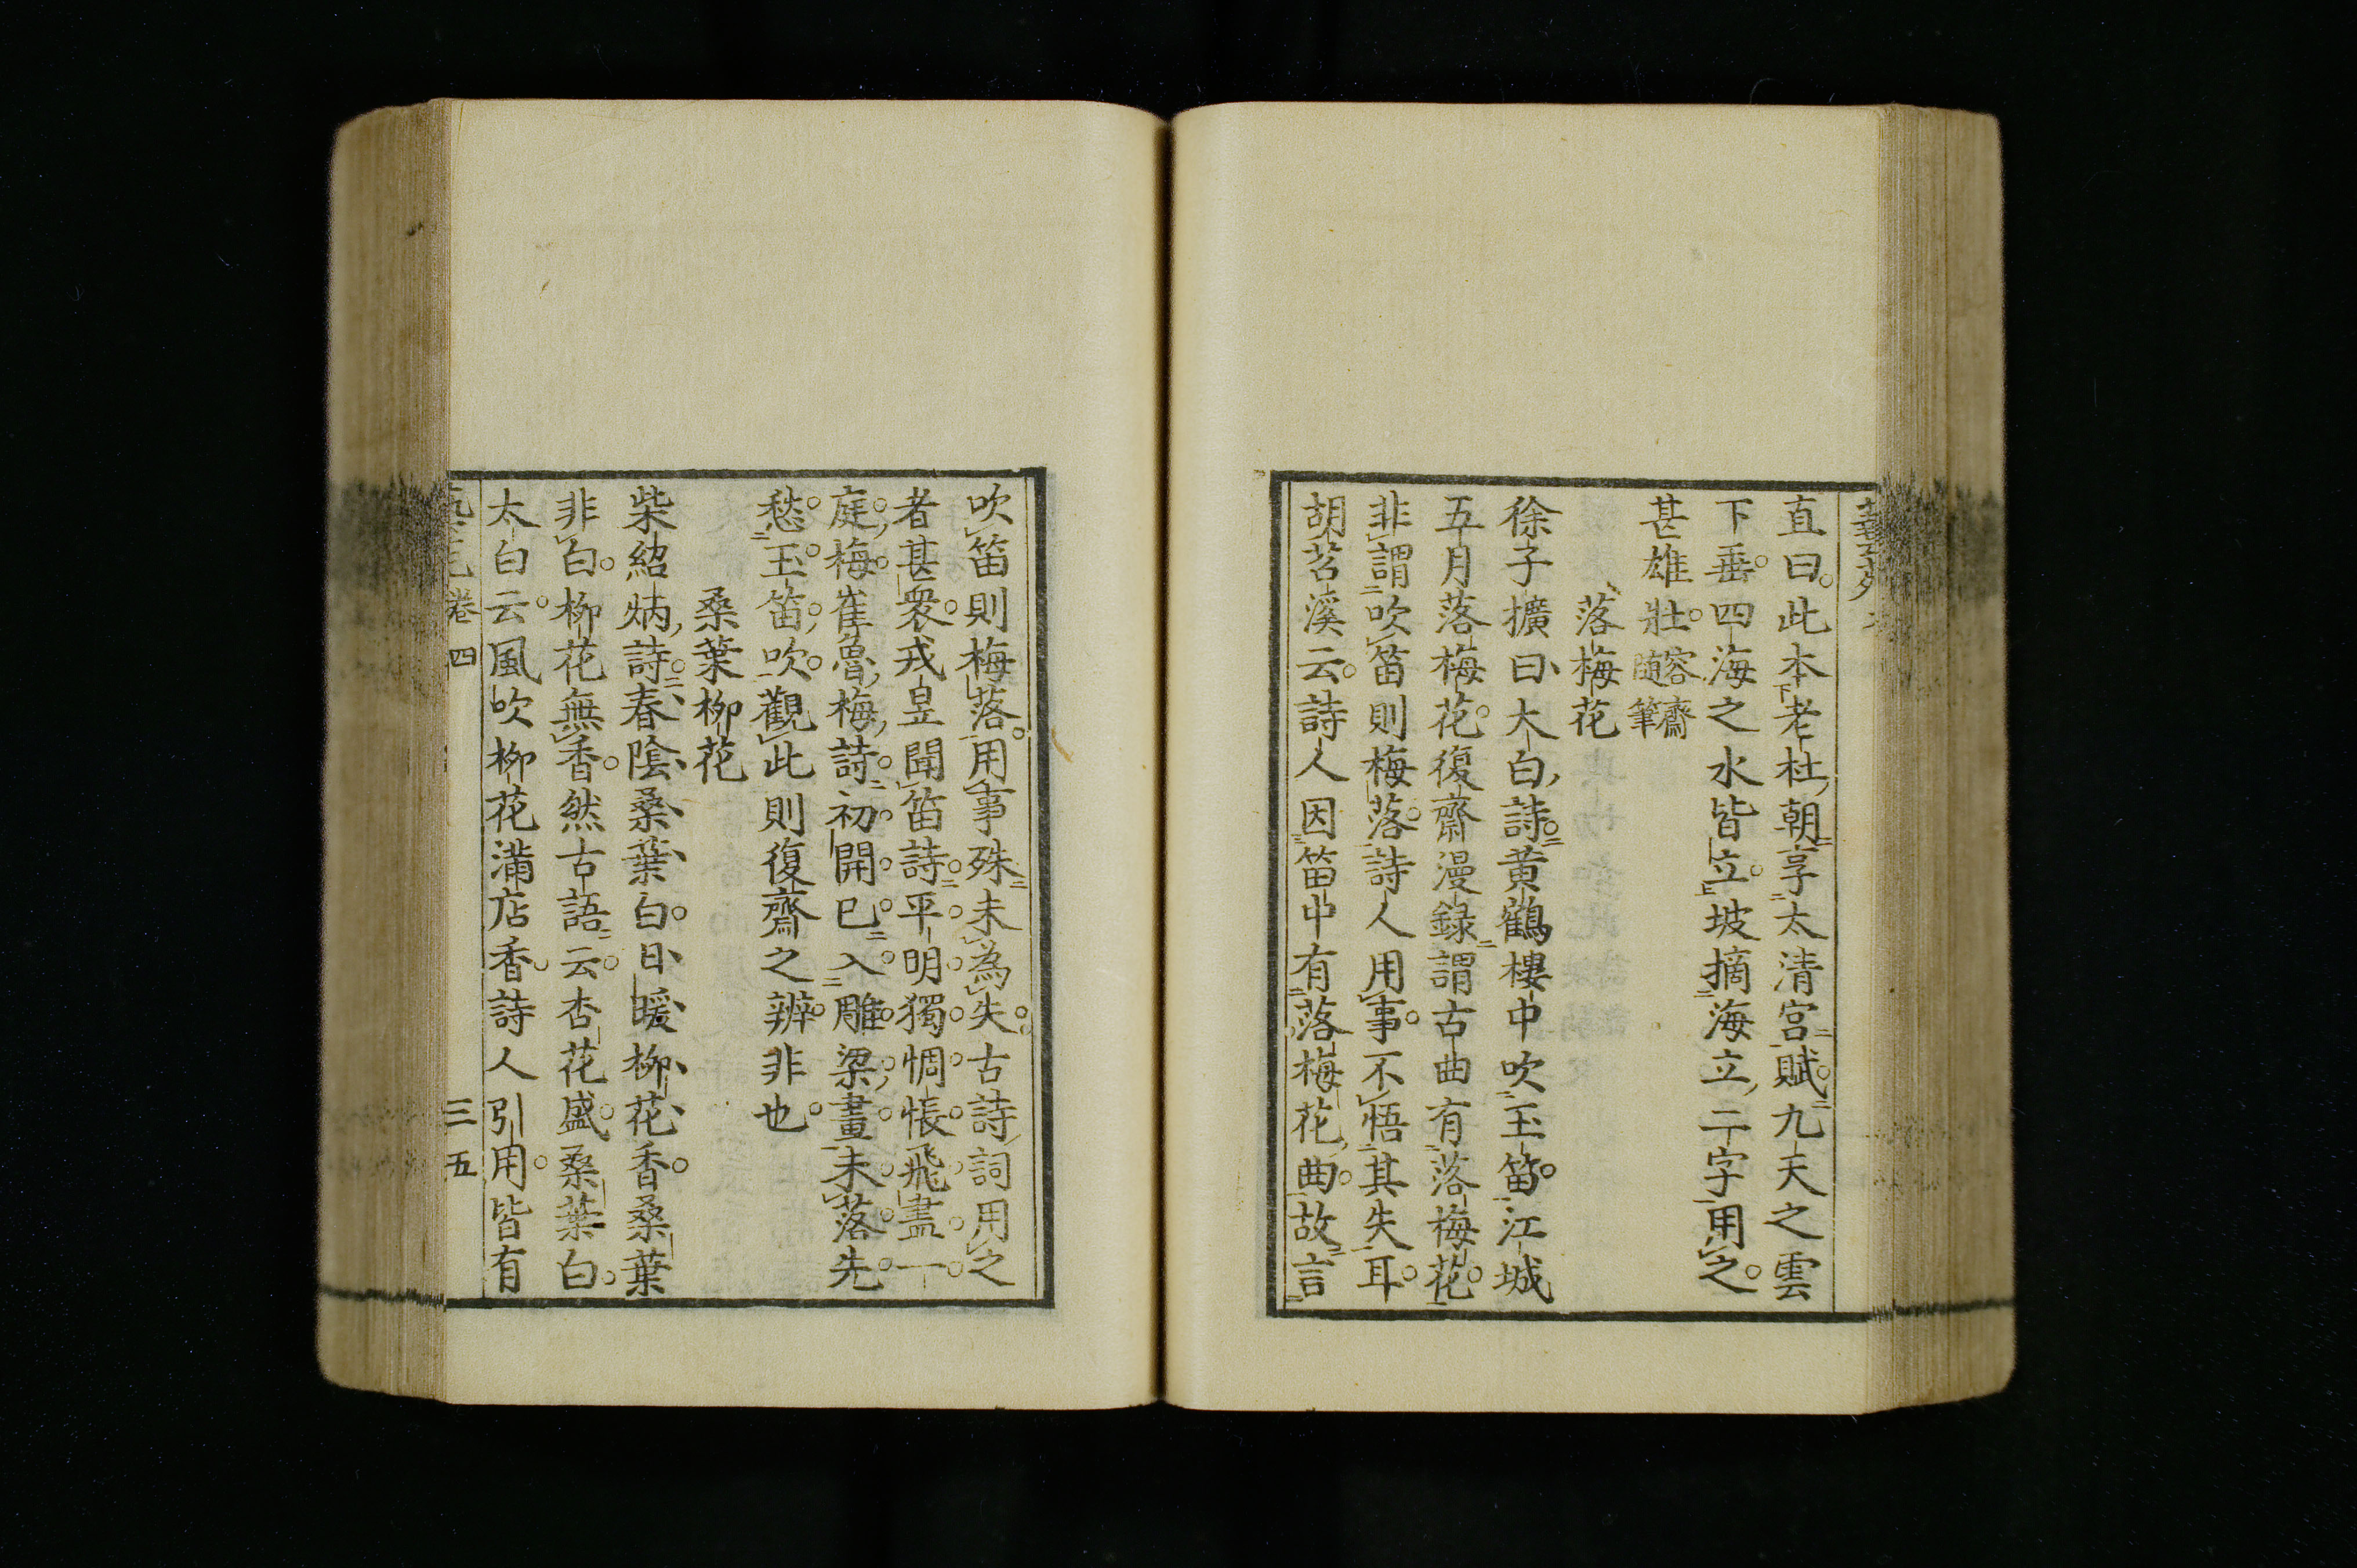 直曰此本老杜朝享太清宮賦九天之雲
下垂四海之水皆立坡摘海立二字用之
甚雄壯容齋隨筆
落梅花
徐子擴曰大白詩黃鶴樓中吹玉笛江城
五月落梅花復齋漫錄謂古曲有落梅花
非謂吹笛則梅落詩人用事不悟其失耳
胡苕溪云詩人因笛中有落梅花曲故言
吹笛則梅落用事殊未為失古詩詞用之
者甚衆戎昱聞笛詩平明獨惆悵飛盡一
庭梅崔魯梅詩初開已入雕梁畫未落先
愁玉笛吹觀此則復齋之辨非也
桑葉柳花
柴紹炳詩春陰桑葉白日暖柳花香桑葉
非白柳花無香然古語云杏花盛桑葉白
太白云風吹柳花滿店香詩人引用皆有
卷四 三五